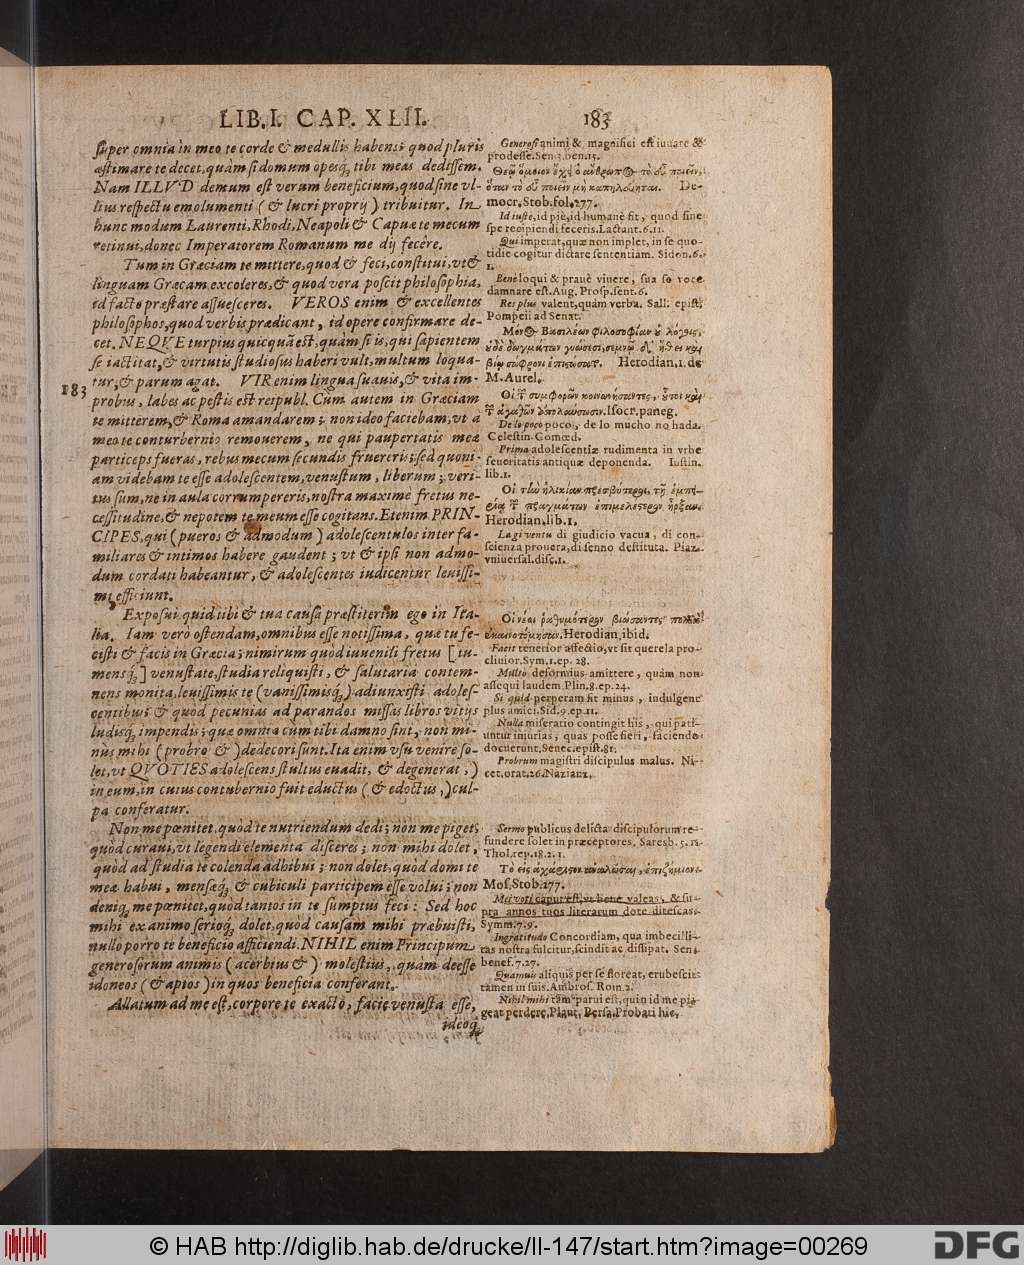 LIB. I. CAP. XLII. 183
super omnia in meo te corde & medullis habens; quod pluris
æstimare te decet, quàm si domum opesq́; tibi meas dedissem.
Nam ILLVD demum est verum beneficium, quod sine vl-
lius respectu emolumenti (& lucri proprij) tribuitur. In
hunc modum Laurenti, Rhodi, Neapoli & Capuæ te mecum
retinui, donec Imperatorem Romanum me dij fecêre.
Tum in Græciam te mittere, quod & feci, constitui, vt &
linguam Græcam excoleres, & quod vera poscit philosophia,
id facto præstare assuesceres. VEROS enim & excellentes
philosophos, quod verbis prædicant, id opere confirmare de-
cet. NEQVE turpius quicquā est, quàm si is, qui sapientem
se iactitat, & virtutis studiosus haberi vult, multum loqua-
183 tur, & parum agat. VIR enim lingua suauis, & vita im-
probus, labes ac pestis est reipubl. Cum autem in Græciam
te mitterem, & Roma amandarem; non ideo faciebam, vt à
meo te conturbernio remouerem, ne qui paupertatis meæ
particeps fueras, rebus mecum secundis fruereris; sed quoni-
am videbam te esse adolescentem, venustum, liberum; veri-
tus sum, ne in aula corrumpereris, nostra maximè fretus ne-
cessitudine, & nepotem te meum esse cogitans. Etenim PRIN-
CIPES, qui (pueros & admodum) adolescentulos inter fa-
miliares & intimos habere gaudent; vt & ipsi non admo-
dum cordati habeantur, & adolescentes iudicentur leuissi-
mi, efficiunt.
Exposui quid tibi & tua causa præstiterim ego in Ita-
lia. Iam verò ostendam, omnibus esse notissima, quæ tu fe-
cisti & facis in Græcia; nimirum quòd iuuenili fretus [tu-
mensq́;] venustate, studia reliquisti, & salutaria contem-
nens monita, leuissimis te (vanissimisq́;) adiunxisti adoles-
centibus; & quod pecunias ad parandos missas libros vitijs
ludisq́; impendis; quæ omnia cùm tibi damno sint, non mi-
nùs mihi (probro &) dedecori sunt. Ita enim vsu venire so-
let, vt QVOTIES adolescens stultus euadit, & degenerat,)
in eum, in cuius contubernio fuit eductus (& edoctus,) cul-
pa conferatur.
Non me pœnitet, quòd te nutriendum dedi; non me piget,
quòd curaui, vt legendi elementa disceres; non mihi dolet,
quòd ad studia te colenda adhibui; non dolet, quòd domi te
meæ habui, mensæq́; & cubiculi participem esse volui; non
deniq́; me pœnitet, quòd tantos in te sumptus feci: Sed hoc
mihi ex animo serioq́; dolet, quòd causam mihi præbuisti,
nullo porrò te beneficio afficiendi. NIHIL enim Principum
generosorum animis (acerbius &) molestius, quàm deesse
idoneos (& aptos) in quos beneficia conferant.
Allatum ad me est, corpore te exacto, facie venusta esse,
ideoq́;
Generosi animi & magnifici est iuuare &
prodesse. Sen. 3. ben. 15.
Θεῷ ὅμοιον ἔχει ὁ ἄνθρωπος τὸ εὖ ποιεῖν,
ὅταν τὸ εὖ ποιεῖν μὴ καπηλεύηται. De-
mocr. Stob. fol. 277.
Id iustè, id piè, id humanè fit, quod sine
spe recipiendi feceris. Lactant. 6. 11.
Qui imperat, quæ non implet, in se quo-
tidie cogitur dictare sententiam. Sidon. 6.
1.
Benè loqui & prauè viuere, sua se voce
damnare est. Aug. Prosp. sent. 6.
Res plus valent, quàm verba. Sall. epist.
Pompeii ad Senat.
Μόνος Βασιλέων φιλοσοφίαν οὐ λόγοις,
οὐδὲ δογμάτων γνώσεσι, σεμνῷ δ' ἤθει καὶ
βίῳ σώφρονι ἐπιστώσατο. Herodian. 1. de
M. Aurel.
Οἱ τῶν συμφορῶν κοινωνήσαντες, οὗτοι καὶ
τῶν ἀγαθῶν ἀπολαύσωσιν. Isocr. paneg.
De lo poco poco, de lo mucho no hada.
Celestin. Comœd.
Prima adolescentiæ rudimenta in vrbe
seueritatis antiquæ deponenda. Iustin.
lib. 1.
Οἱ τὴν ἡλικίαν πρεσβύτεροι, τῇ ἐμπει-
ρίᾳ τῶν πραγμάτων ἐπιμελέστερον ἦρξαν.
Herodian. lib. 1.
La giventu di giudicio vacua, di con-
scienza prouera, di senno destituta. Piaz.
vniuersal. disc. 1.
Οἱ νέοι ῥᾳθυμότερον βιώσαντες πολλὰ
ἐκαινοτόμησαν. Herodian. ibid.
Facit tenerior affectio, vt sit querela pro-
clivior. Sym. 1. ep. 28.
Multò deformius amittere, quàm non
assequi laudem. Plin. 8. ep. 24.
Si quid perperam fit minus, indulgent
plus amici. Sid. 9. ep. 11.
Nulla miseratio contingit his, qui pati-
untur iniurias, quas posse fieri, faciendo
docuerunt. Senec. epist. 81.
Probrum magistri discipulus malus. Ni-
cet. orat. 26. Nazianz.
Sermo publicus delicta discipulorum re-
fundere solet in præceptores. Saresb. 5. 7.
Thol. rep. 18. 2. 1.
Τὸ εἰς ἀχάριστον ἀναλῶσαι, ἐπιζήμιον.
Mos. Stob. 277.
Mei voti caput est, vt bene valeas, & su-
pra annos tuos literarum dote ditescas.
Symm. 7. 9.
Ingratitudo Concordiam, qua imbecilli-
tas nostra fulcitur, scindit ac dissipat. Sen.
benef. 7. 27.
Quamuis aliquis per se floreat, erubescit
tamen in suis. Ambros. Rom. 2.
Nihil mihi tàm parui est, quin id me pi-
geat perdere. Plaut. Persa. Probati hic.
© HAB http://diglib.hab.de/drucke/li-147/start.htm?image=00269
DFG